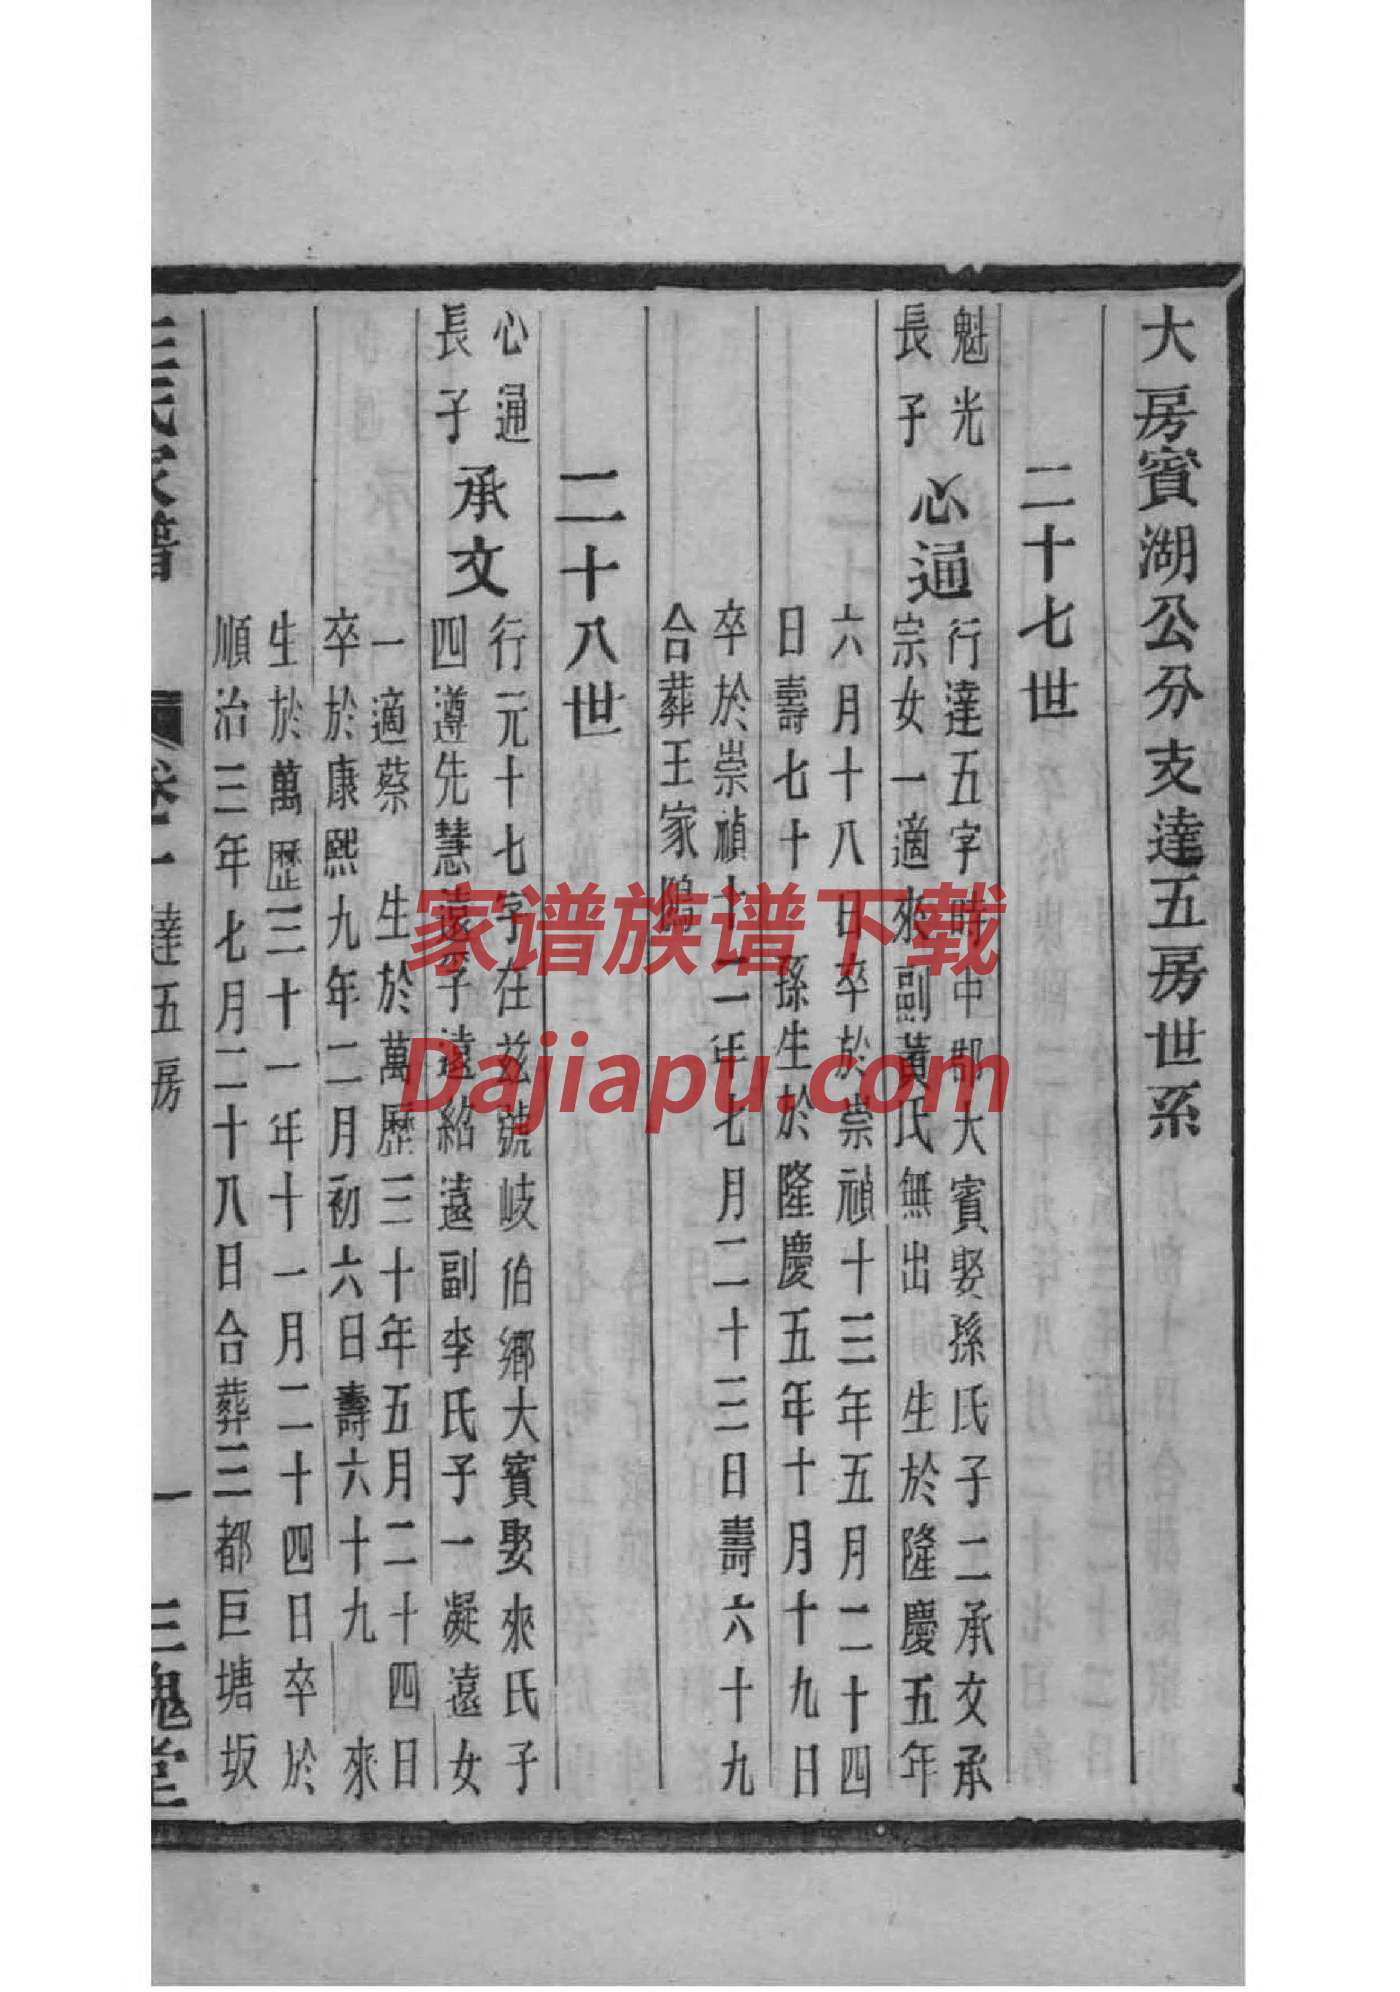 大房賓湖公分支達五房世系
二十七世
魁光
長子
心通
行達五字時中郡大賓娶孫氏子二承文承
宗女一適來副黃氏無出 生於隆慶五年
六月十八日卒於崇禎十三年五月二十四
日壽七十 孫生於隆慶五年十月十九日
卒於崇禎十二年七月二十三日壽六十九
合葬王家塢
二十八世
心通
長子
承文
行元十七字在茲號岐伯鄉大賓娶來氏子
四遵先慧遠孚遠紹遠副李氏子一凝遠女
一適蔡 生於萬歷三十年五月二十四日
卒於康熙九年二月初六日壽六十九 來
生於萬歷三十一年十一月二十四日卒於
順治三年七月二十八日合葬三都巨塘坂
王氏家譜
卷一 達五房
一
三槐堂
家谱族谱下载
Dajiapu.com